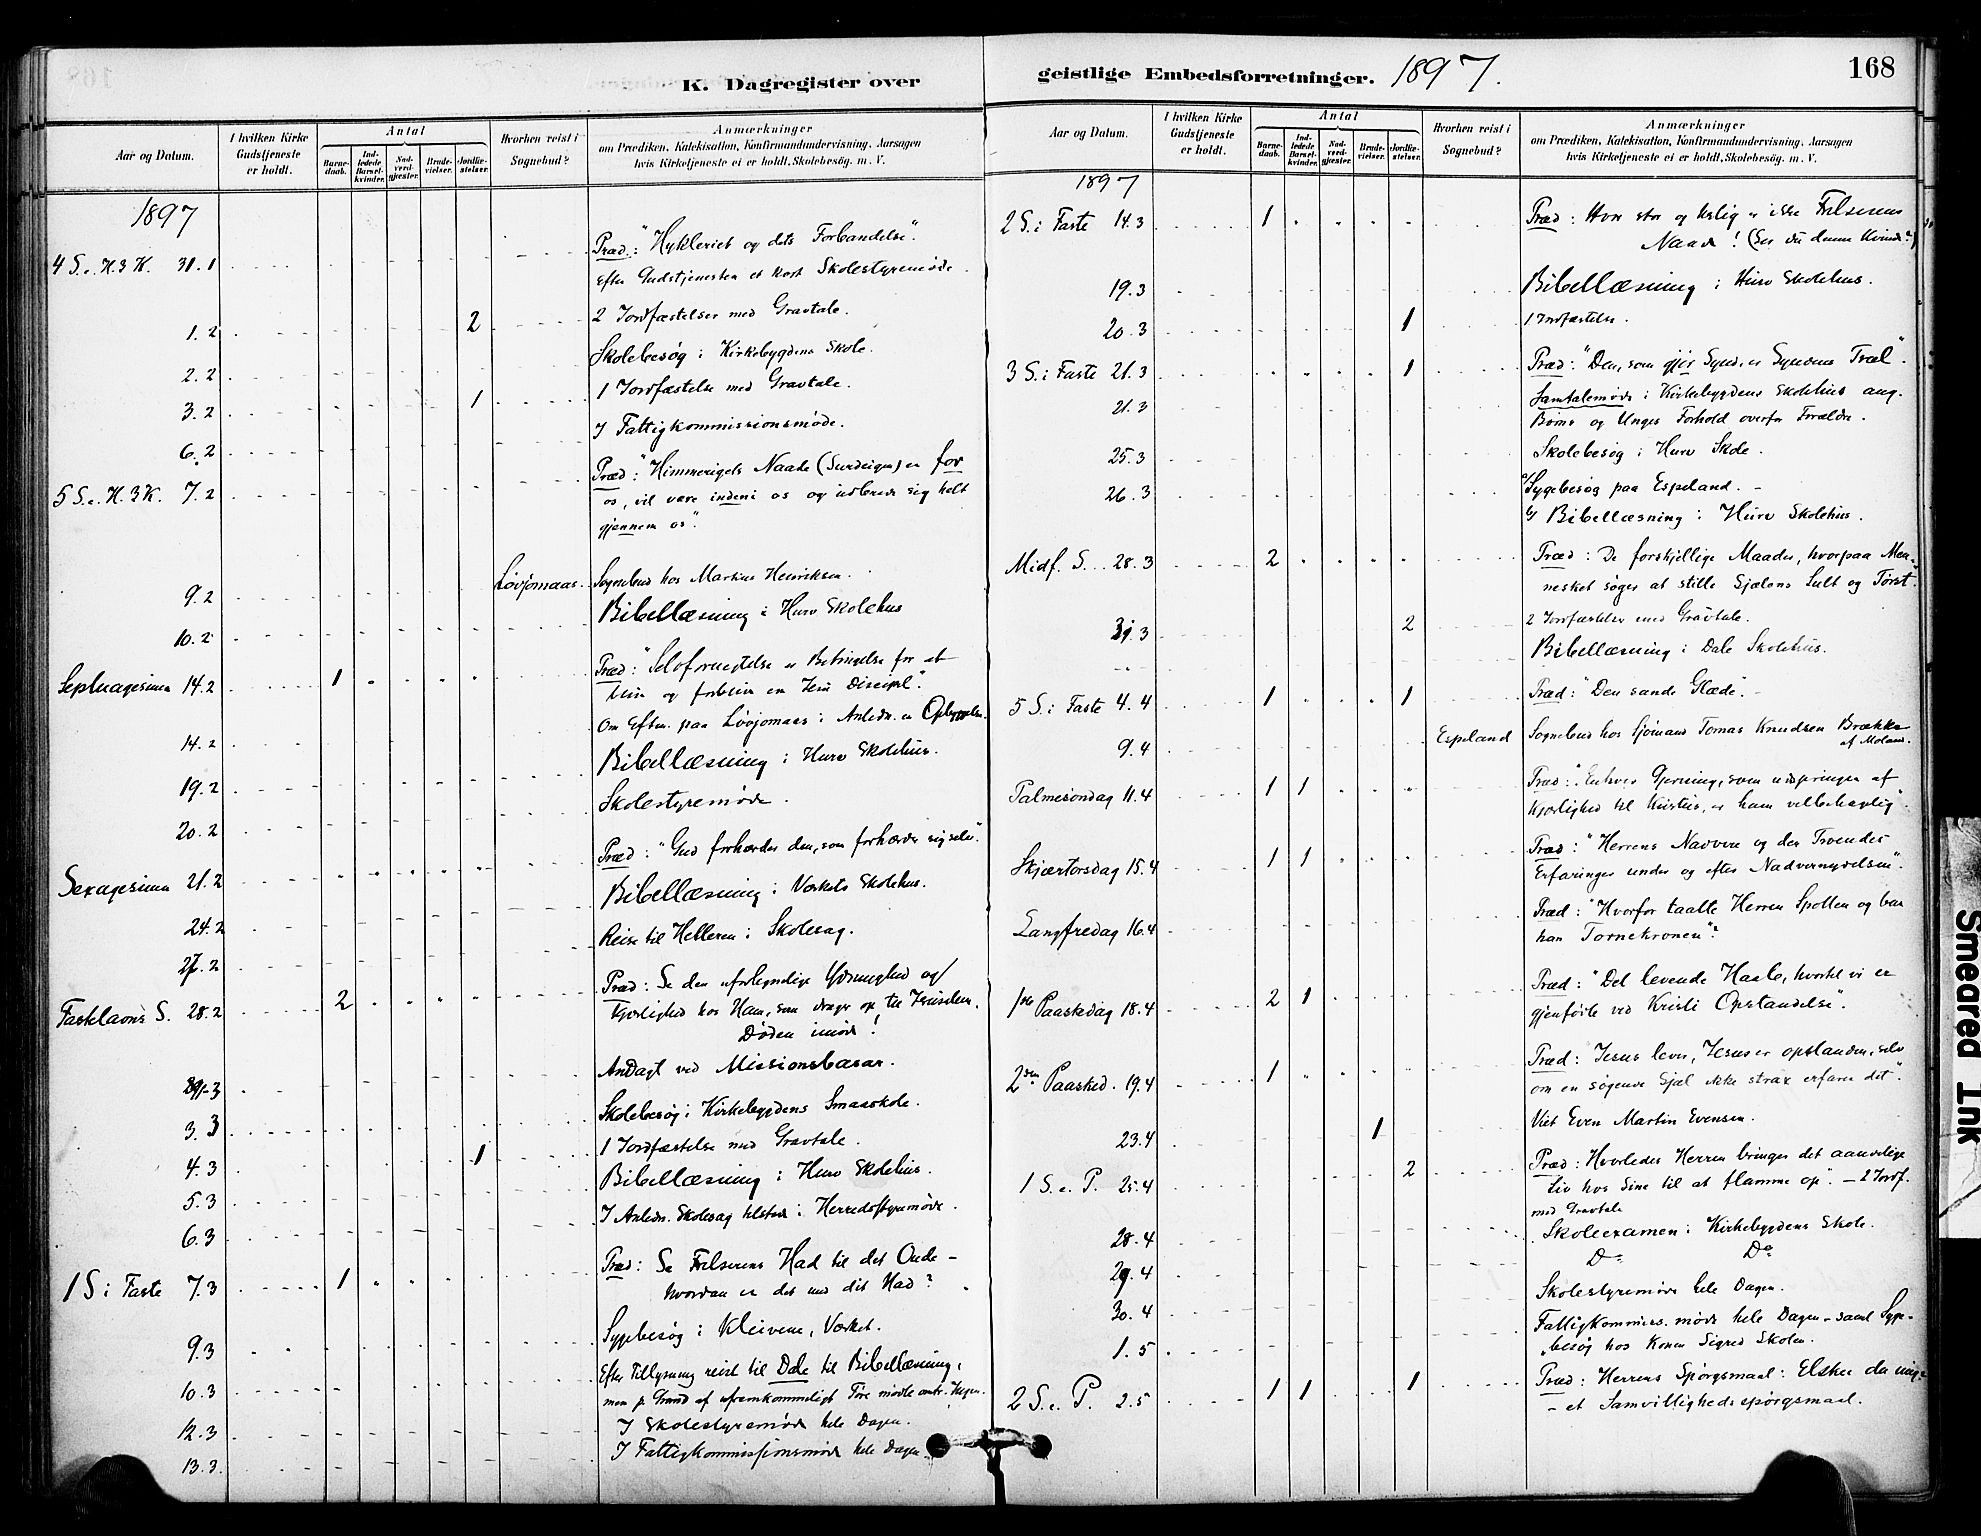 K. Dagregister over
Aar og Datum.
I hvilken Kirke Gudstjeneste er holdt.
Antal
Barnedaab.
Indledede Barselkvinder.
Nadverdgjester.
Brudevielser.
Jordfæstelser.
Hvorhen reist i Sognebud?
Anmærkninger
om Prædiken, Katekisation, Konfirmandundervisning, Aarsagen
hvis Kirketjeneste ei er holdt, Skolebesög. m. V.
1897
4 S. e. H. 3 K. 31.1 Præd: "Hykleriet og dets Forbandelse".
Efter Gudstjenesten et kort Skolestyremøde.
1.2 2 2 Jordfæstelser med Gravtale.
2.2 Skolebesøg i Kirkebygdens Skole.
3.2 1 1 Jordfæstelse med Gravtale.
6.2 I Fattigkommissionsmøde.
5 S. e. H. 3 K. 7.2 Præd: "Himmerigets Naade (Surdeigen) er for
os, vil være indeni os og udbrede sig helt
gjennem os".
9.2 Løvjomaas Sognebud hos Markus Henriksen.
10.2 Bibellæsning i Hurv Skolehus
Septuagesima 14.2 1 Præd: "Selvfornegtelse er Betingelse for at
blive og forblive en Jesu Discipel".
14.2 Om Efterm. paa Løvjomaas i Anledn. en
19.2 Bibellæsning i Hurv Skolehus.
20.2 Skolestyremøde.
Sexagesima 21.2 Præd: "Gud forhærder den, som forhærder sig selv."
24.2 Bibellæsning i Værkets Skolehus.
27.2 Reise til Helleren i Skolesag.
Fastelavns S. 28.2 2 Præd: Se den uforlignelige Ydmyghed og
Kjærlighed hos Ham, som drager op til Jerusalem,
Døden imøde!
Andagt ved Missionsbasar.
3.3 Skolebesøg i Kirkebygdens Smaaskole.
4.3 1 1 Jordfæstelse med Gravtale.
5.3 Bibellæsning i Hurv Skolehus.
6.3 I Anledn. Skolesag tilstede i Herredsstyremøde.
1 S. i Faste 7.3 1 Præd: Se Frelserens Had til det Onde -
hvordan er det med dit Had?
9.3 Sygebesøg i Kleivene, Værket.
10.3 Efter Tillysning reist til Dale til Bibellæsning,
men p. Grund af ufremkommeligt Føre mødte omtr. Ingen.
12.3 I Skolestyremøde hele Dagen.
13.3. I Fattigkommissionsmøde hele Dagen.
geistlige Embedsforretninger. 1897.
168
Aar og Datum.
I hvilken Kirke Gudstjeneste er holdt.
Antal
Barnedaab.
Indledede Barselkvinder.
Nadverdgjester.
Brudevielser.
Jordfæstelser.
Hvorhen reist i Sognebud?
Anmærkninger
om Prædiken, Katekisation, Konfirmandundervisning, Aarsagen
hvis Kirketjeneste ei er holdt, Skolebesög. m. V.
1897
2 S. i Faste 14.3 1 Præd: Hvor stor og herlig er ikke Frelserens
Naade! (Ser du denne Kvinde?)
19.3 Bibellæsning i Hurv Skolehus.
20.3 1 1 Jordfæstelse.
3 S. i Faste 21.3 1 Præd: "Den, som gjør Synd, er Syndens Træl".
21.3 Samtalemøde i Kirkebygdens Skolehus ang.
Børns og Unges Forhold overfor Forældre.
25.3 Skolebesøg i Hurv Skole.
26.3 a/ Sygebesøg paa Espeland. -
b/ Bibellæsning i Hurv Skolehus.
Midf. S. 28.3 2 Præd: De forskjellige Maader, hvorpaa Men-
nesket søger at stille Sjælens Sult og Tørst.
31.3 2 2 Jordfæstelser med Gravtale.
Bibellæsning i Dale Skolehus.
5 S. i Faste 4.4 1 1 Præd: "Den sande Glæde". -
9.4 Espeland Sognebud hos Sjømand Tomas Knudsen Brække
af Moland.
Palmesøndag 11.4 1 1 Præd: "Enhver Gjerning, som udspringer af
Kjærlighed til Kristus, er ham velbehagelig".
Skjærtorsdag 15.4 1 1 Præd: "Herrens Nadvere og den Troendes
Erfaringer under og efter Nadvernydelsen".
Langfredag 16.4 Præd: "Hvorfor taalte Herren Spotten og bar
han Tornekronen"?
1ste Paaskedag 18.4 2 1 Præd: "Det levende Haab, hvortil vi er
gjenfødte ved Kristi Opstandelse".
2den Paasked. 19.4 1 Præd: "Jesus lever, Jesus er opstanden, selv
om en søgende Sjæl ikke strax erfarer det".
23.4 1 Viet Even Martin Evensen.
1 S. e. P. 25.4 2 Præd: Hvorledes Herren bringer det aandelige
Liv hos Sine til at flamme op". - 2 Jordf.
med Gravtale
28.4 Skoleexamen i Kirkebygdens Skole.
29.4 Do Do
30.4 Skolestyremøde hele Dagen.
1.5 Fattigkommis. møde hele Dagen - samt Syge-
besøg hos Konen Sigrid Skolen.
2 S. e. P. 2.5 1 1 1 Præd: Herrens Spørgsmaal: Elsker du mig
- et Samvittighedsspørgsmaal.
Smeared Ink